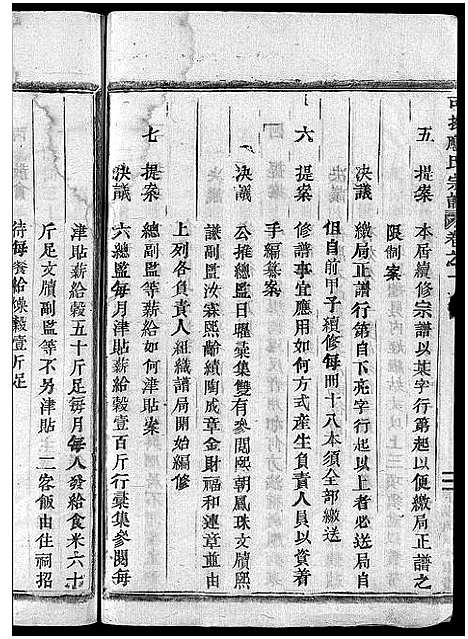 五 提案 本屆續修宗譜以某字行第起以便繳局正譜之
限制案
決議 繳局正譜行第自下亮字行起以上者必送局自
但自前甲子續修每冊十八本須全部繳送
六 提案 修譜事宜應用如何方式產生負責人員以資着
手編纂案
決議 公推總監日曜彙集雙有參閱熙朝鳳珠文牘熙
謙副監汝森熙齡續陶成章金財福和連章並由
上列各負責人組織譜局開始編修
七 提案 總副監等薪給如何津貼案
決議 六總監每月津貼薪給榖壹百斤行彙集參閱每
津貼薪給榖五十斤足每月每人發給食米六十
斤足文牘副監等不另津貼 二客飯由住祠招
待每餐給榖壹斤足
氏宗譜 卷之一